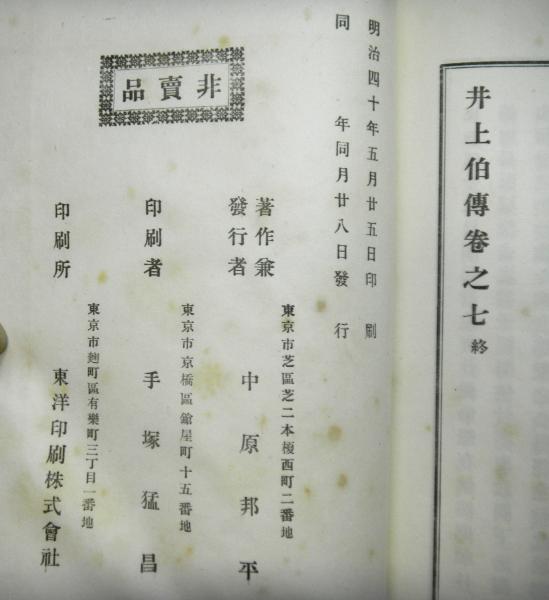 井上伯傳卷之七終
明治四十年五月廿五日印刷
同年同月廿八日發行
非賣品
著作兼
發行者
東京市芝區芝二本榎西町二番地
中原邦平
印刷者
東京市京橋區鎗屋町十五番地
手塚猛昌
印刷所
東京市麹町區有樂町三丁目一番地
東洋印刷株式會社